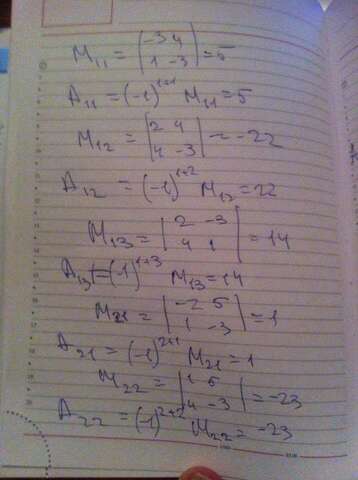 M₁₁ = |-3 4; 1 -3| = 5
A₁₁ = (-1)¹⁺¹ M₁₁ = 5
M₁₂ = |2 4; 4 -3| = -22
A₁₂ = (-1)¹⁺² M₁₂ = 22
M₁₃ = |2 -3; 4 1| = 14
A₁₃ = (-1)¹⁺³ M₁₃ = 14
M₂₁ = |-2 5; 1 -3| = 1
A₂₁ = (-1)²⁺¹ M₂₁ = 1
M₂₂ = |1 5; 4 -3| = -23
A₂₂ = (-1)²⁺² M₂₂ = -23